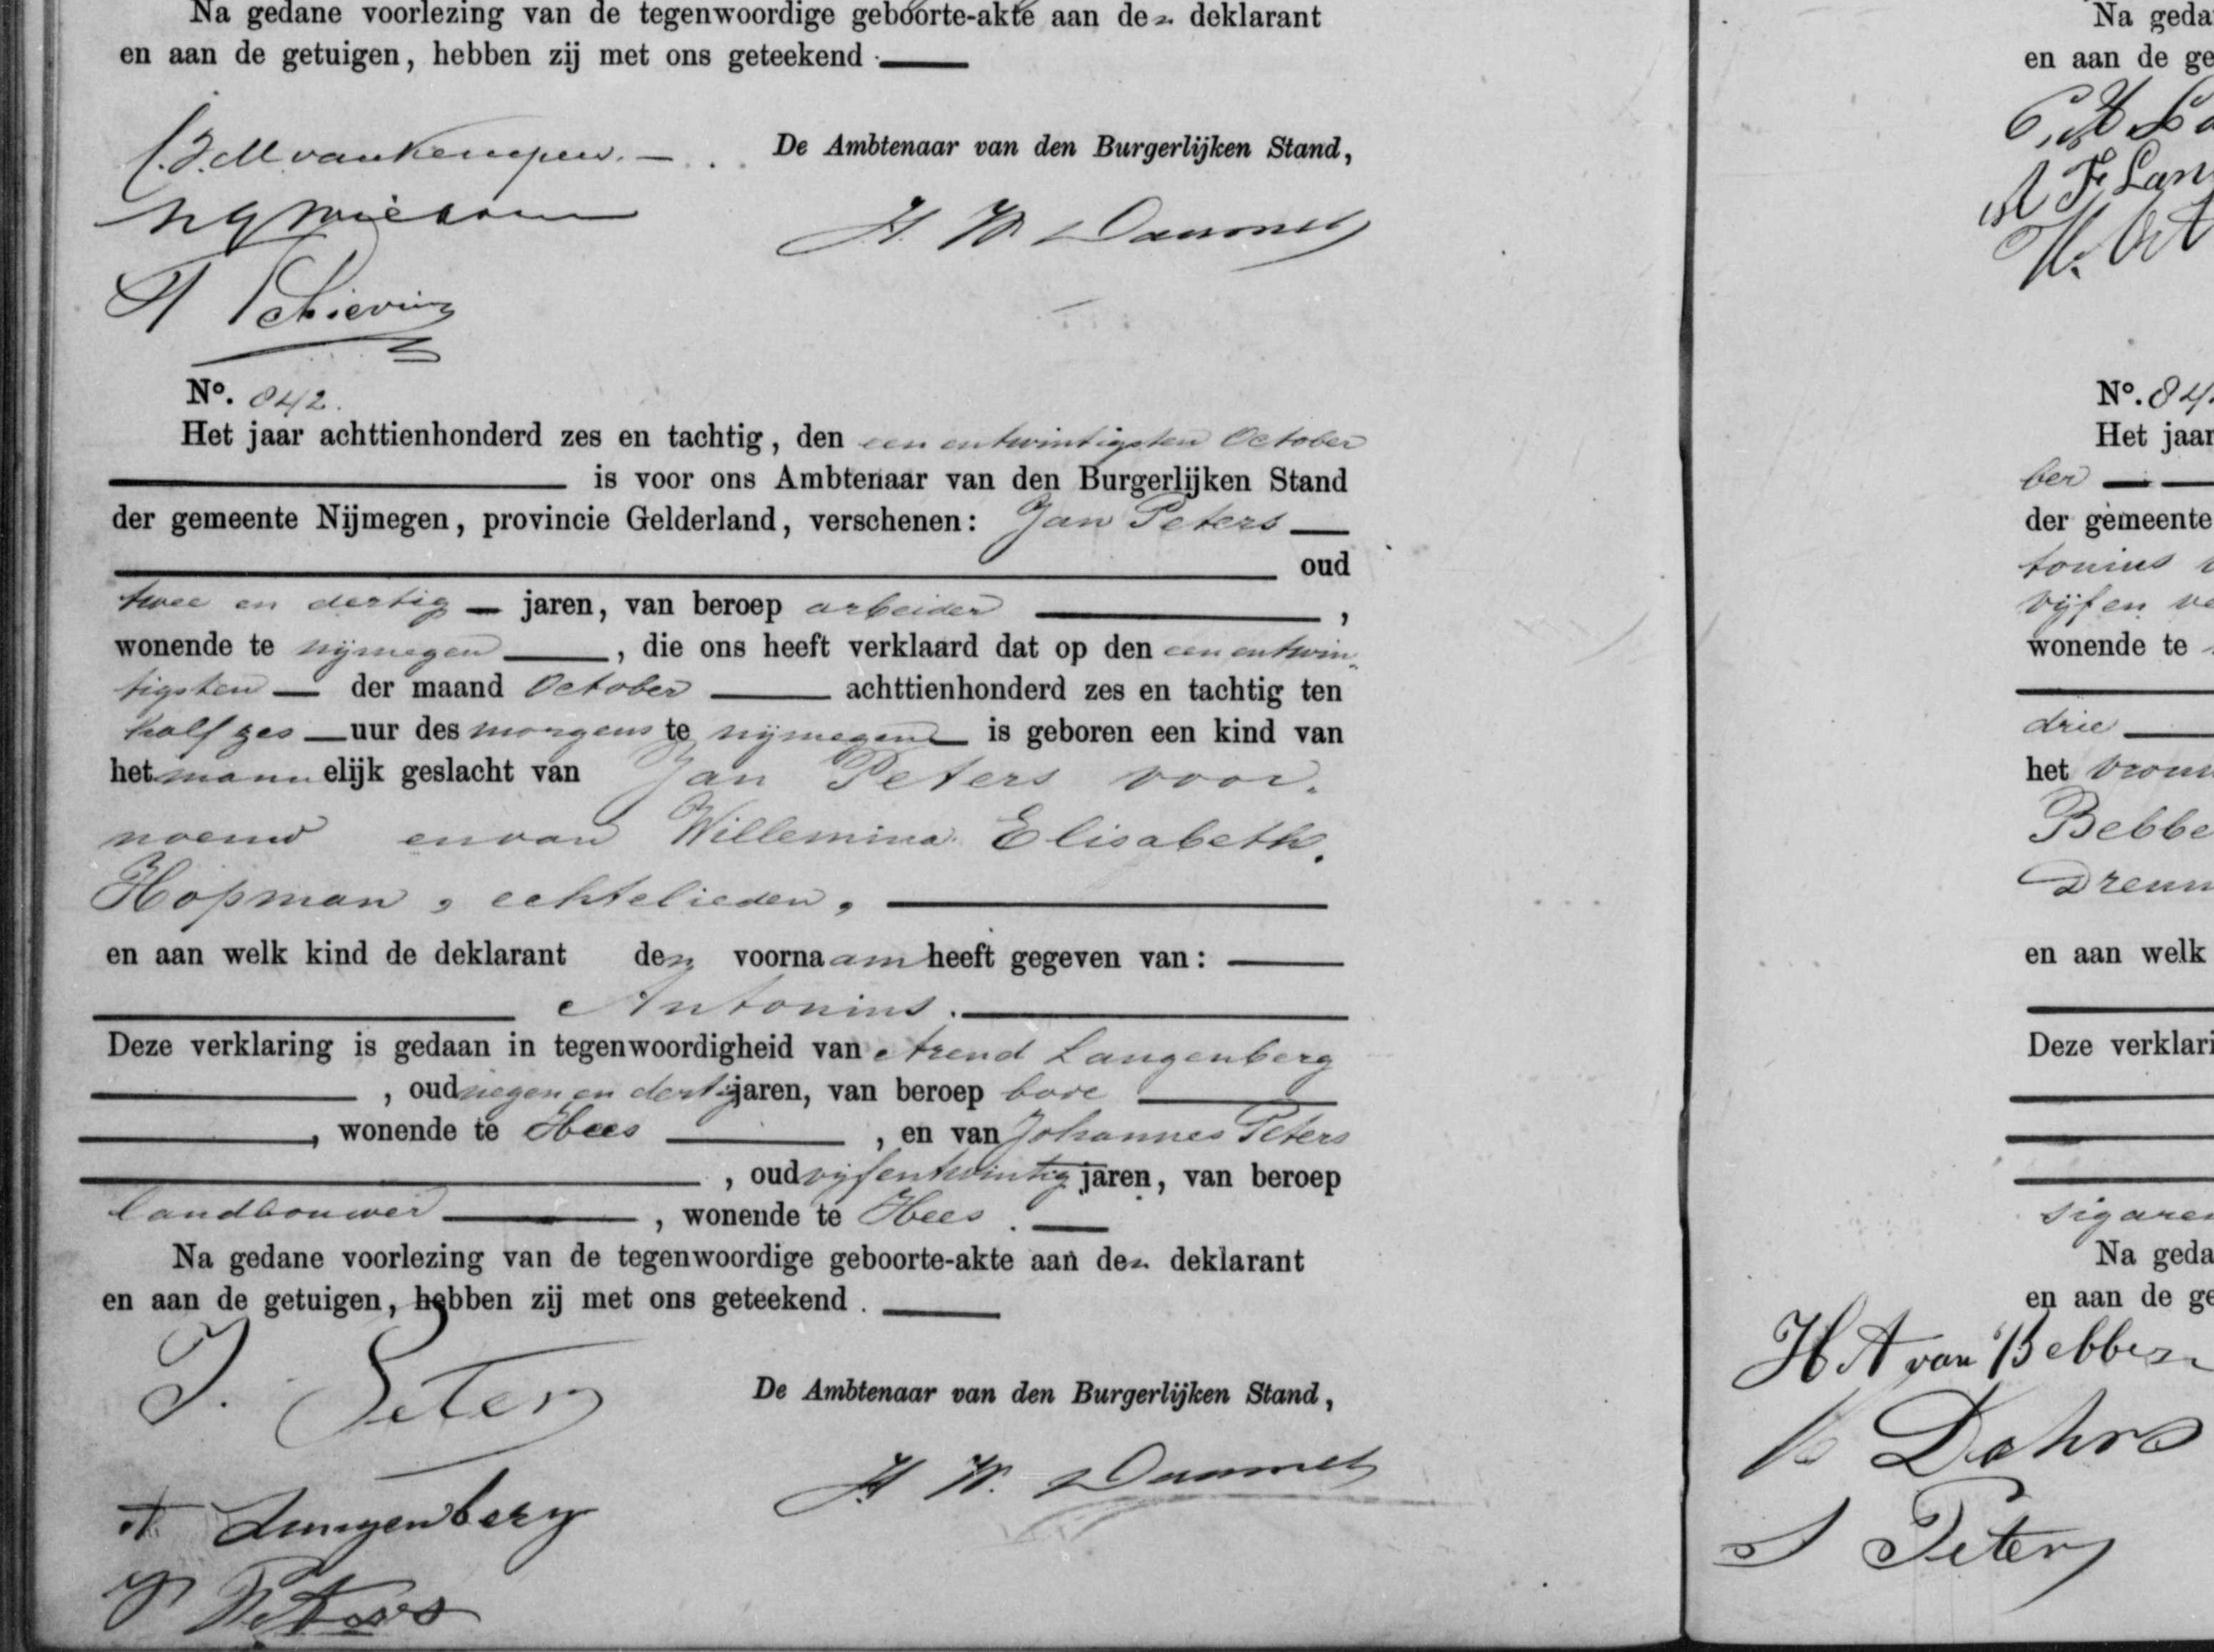 Na gedane voorlezing van de tegenwoordige geboorte-akte aan den deklarant
en aan de getuigen, hebben zij met ons geteekend.
van Kempen.
De Ambtenaar van den Burgerlijken Stand,
H. W.
H Schievink
No. 842.
Het jaar achttienhonderd zes en tachtig, den een entwintigsten October
is voor ons Ambtenaar van den Burgerlijken Stand
der gemeente Nijmegen, provincie Gelderland, verschenen: Jan Peters
oud
twee en dertig jaren, van beroep arbeider,
wonende te Nijmegen, die ons heeft verklaard dat op den een entwin-
tigsten der maand October achttienhonderd zes en tachtig ten
half zes uur des morgens te Nijmegen is geboren een kind van
het mannelijk geslacht van Jan Peters voor-
noemd en van Willemina Elisabeth
Hopman, echtelieden,
en aan welk kind de deklarant den voornaam heeft gegeven van:
Antonius.
Deze verklaring is gedaan in tegenwoordigheid van Arend Langenberg
, oud negen en dertig jaren, van beroep bode
, wonende te Hees, en van Johannes Peters
, oud vijfentwintig jaren, van beroep
landbouwer, wonende te Hees.
Na gedane voorlezing van de tegenwoordige geboorte-akte aan den deklarant
en aan de getuigen, hebben zij met ons geteekend.
J. Peters
De Ambtenaar van den Burgerlijken Stand,
H. W.
A Langenberg
Peters
Na geda
en aan de ge
A F Lan
No. 84
Het jaar
ber
der gemeente
tonius
vijf en ve
wonende te
drie
het vrouw
Bebbe
Dreum
en aan welk
Deze verklari
sigaren
Na geda
en aan de ge
H A van Bebber
Dahrs
Peters